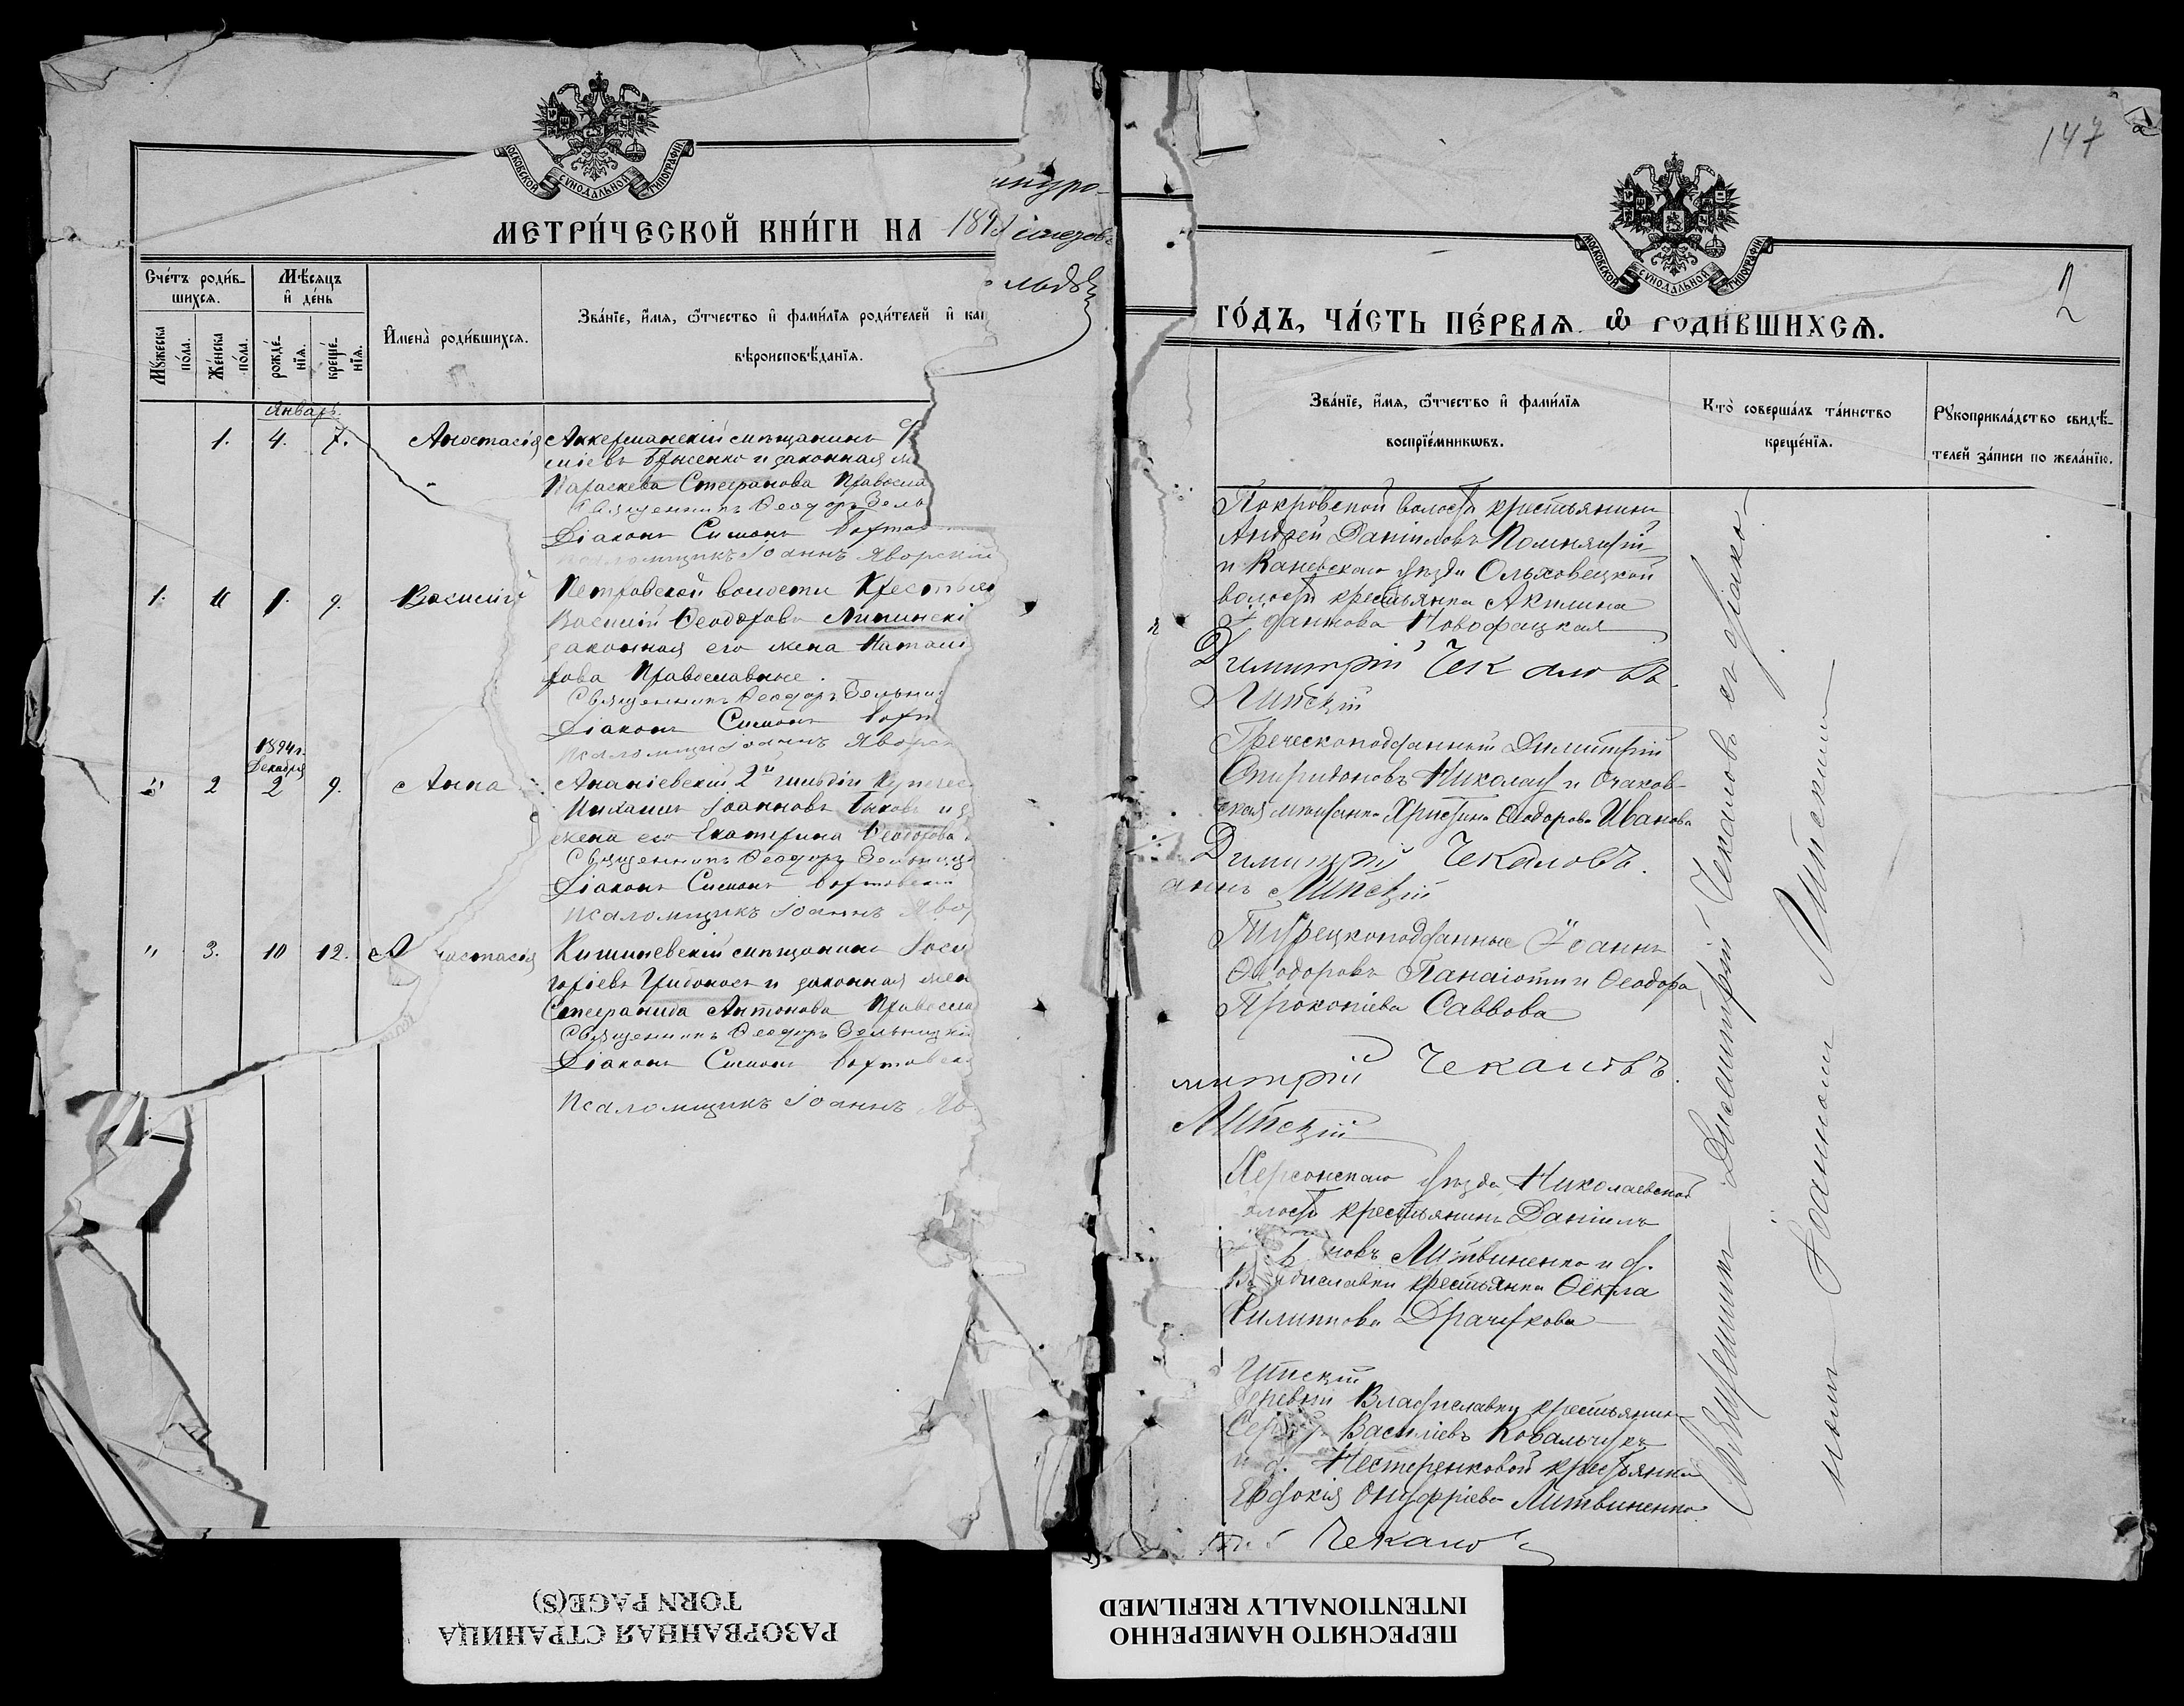 МОСКОВСКОЙ СѴНОДАЛЬНОЙ ТИПОГРАФІИ
МЕТРИЧЕСКОЙ КНИГИ НА 189
Счетъ родив-
шихся.
Мѣсяцъ
и день
Мужеска
пола.
Женска
пола.
рожде-
нія.
креще-
нія.
Имена родившихся.
Званіе, имя, отчество и фамилія родителей и ка
вѣроисповѣданія.
Январь
1. 4. 7. Анастасія Аккерманскій мѣщанинъ
и законная
Параскева Стефанова Правосла
Священникъ Ѳеодоръ Зель
Діаконъ Симонъ
Псаломщикъ Іоаннъ Яворскій
1. " 1. 9. Василій Петровской волости Крестьян
Василій Ѳеодоровъ Липинскі
законная его жена Натал
рова Православные.
Священникъ Ѳеодоръ Зельниц
Діаконъ Симонъ
Псаломщикъ Іоаннъ Яворс
1894 г.
Декабря
" 2 2 9. Анна Ананіевскій 2й гильдіи Купечес
Михаилъ Іоанновъ Быковъ и
жена его Екатерина Ѳеодорова
Священникъ Ѳеодоръ Зельницк
Діаконъ Симонъ
Псаломщикъ Іоаннъ Явор
" 3. 10 12. А настасія Кишиневскій мѣщанинъ
горіевъ и законная жен
Стефанида Антонова Правосла
Священникъ Ѳеодоръ Зельницкій
Діаконъ Симонъ
Псаломщикъ Іоаннъ Яв
147
2
МОСКОВСКОЙ СѴНОДАЛЬНОЙ ТИПОГРАФІИ
ГОДЪ, ЧАСТЬ ПЕРВАЯ Ѡ РОДИВШИХСЯ.
Званіе, имя, отчество и фамилія
воспріемниковъ.
Кто совершалъ таинство
крещенія.
Рукоприкладство свидѣ-
телей записи по желанію.
Покровской волости крестьянинъ
Андрей Даніиловъ
и Каневскаго уѣзда Ольховецкой
волости крестьянка Акилина
Новофацкая
Димитрій Чекановъ
Липскій
Греческоподданный Димитрій
Спиридоновъ Николау и Очаков-
ская мѣщанка Христина Ѳеодорова Иванова
Димитрій Чекановъ.
аннъ Липскій
Турецкоподданные Іоаннъ
Ѳеодоровъ Панаіоти и Ѳеодора
Прокопіева Саввова
митрій Чекановъ.
Липскій
Херсонскаго уѣзда, Николаевской
волости крестьянинъ Даніилъ
новъ Литвиненко и д.
диславки крестьянка Ѳекла
Филиппова Драчукова
Липскій
Деревни Владиславки крестьянинъ
Сергѣй Василіевъ Ковальчукъ
и д. Нестеренковой крестьянка
Евдокія Онуфріева Литвиненко
Чекано
Священникъ Димитрій Чекановъ съ діако-
номъ Іоанномъ Липскимъ
РАЗОРВАННАЯ СТРАНИЦА
TORN PAGE(S)
ПЕРЕСНЯТО НАМЕРЕННО
INTENTIONALLY REFILMED